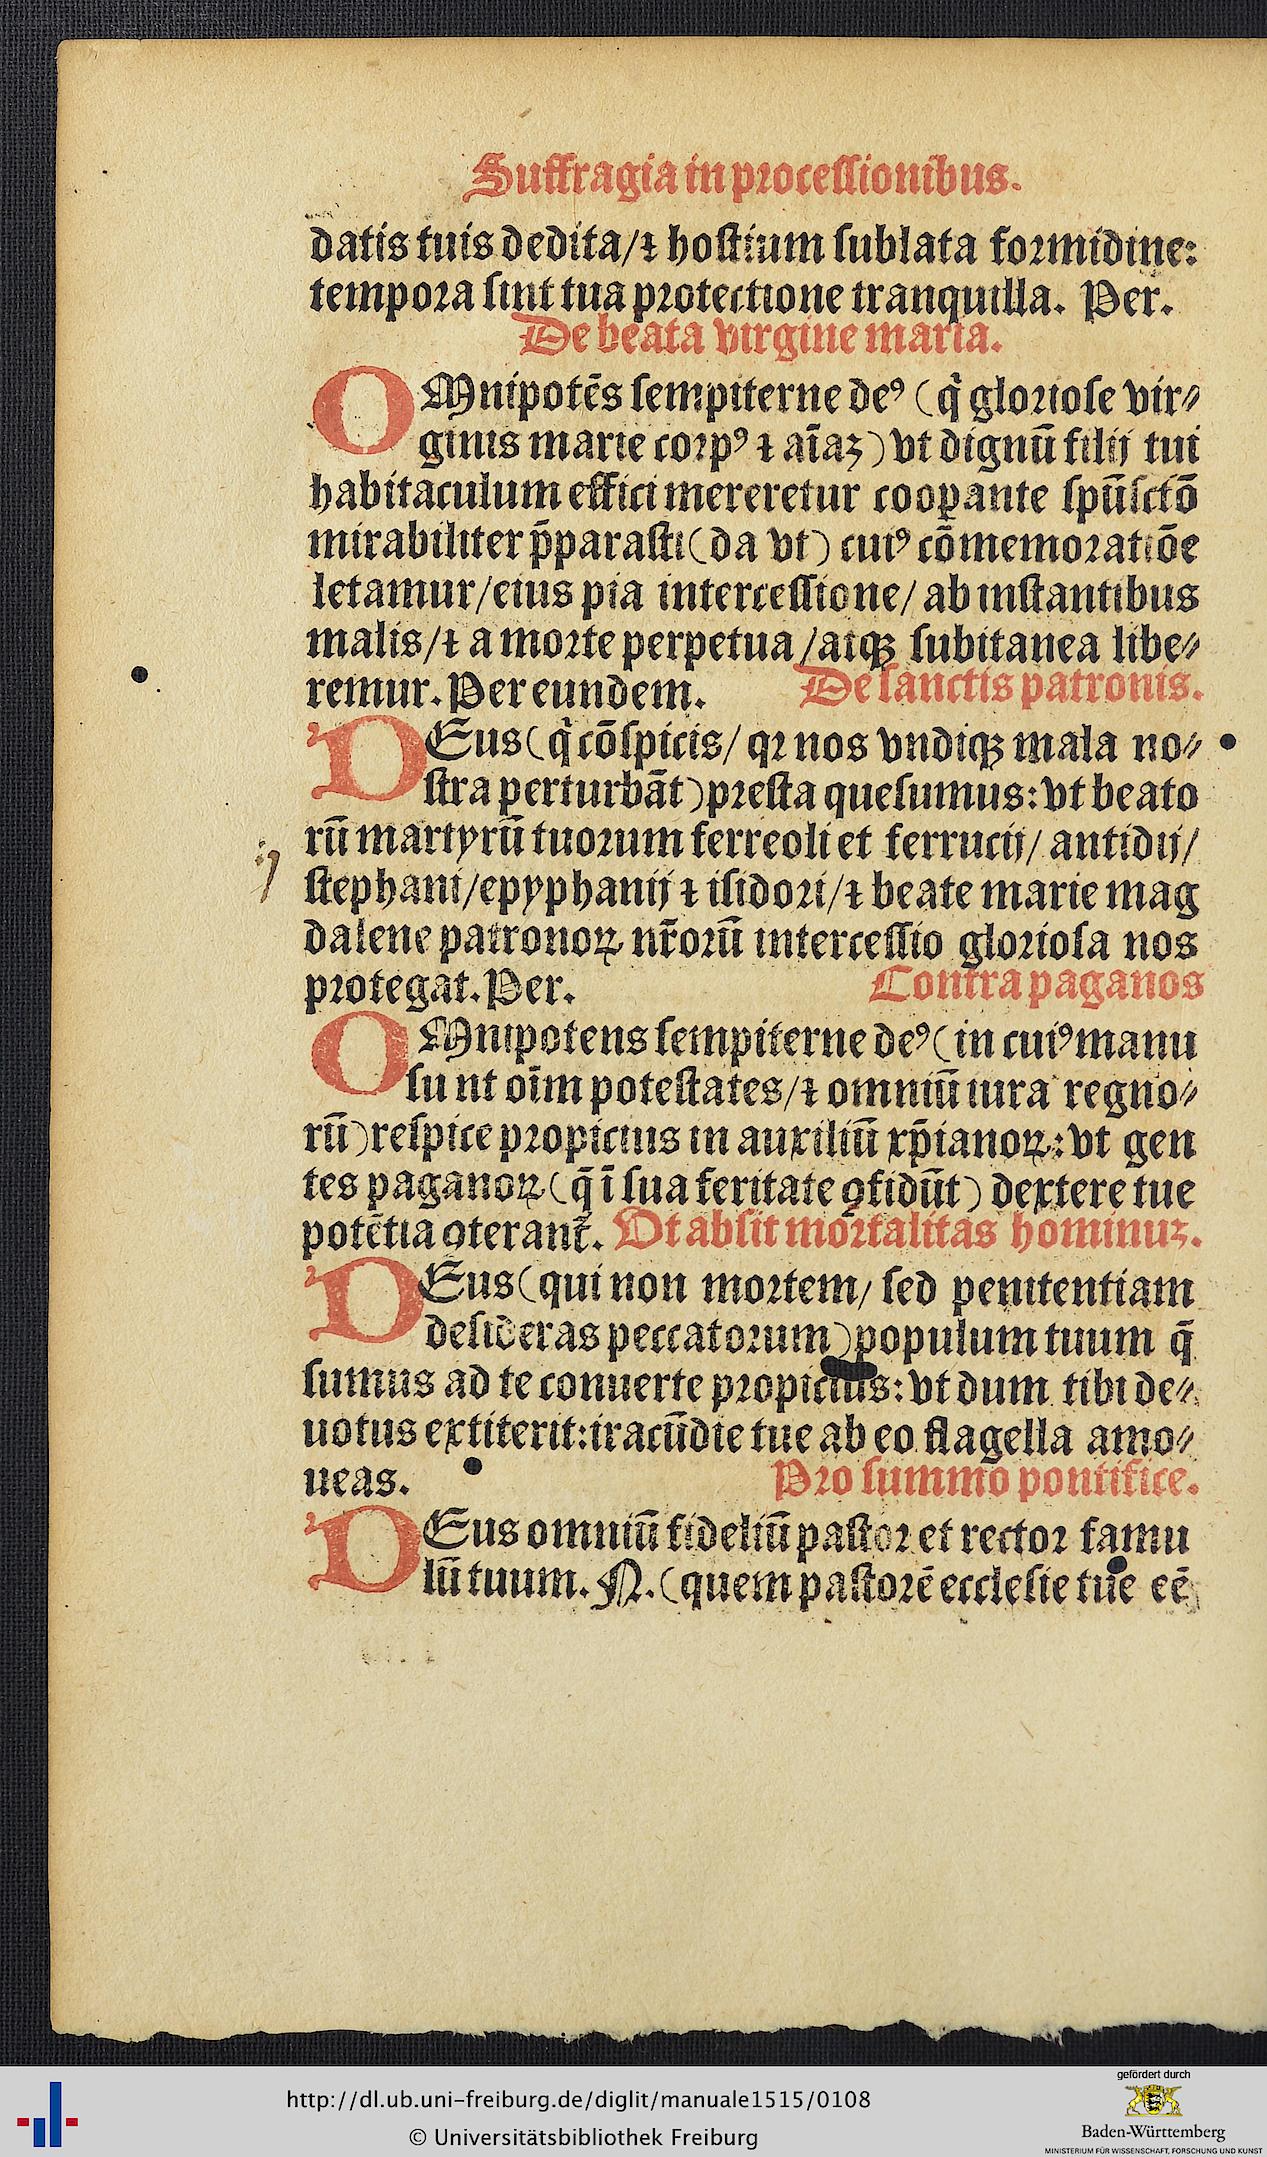 Suffragia in processionibus.
datis tuis dedita/ ⁊ hostium sublata formidine:
tempora sint tua protectione tranquilla. Per.
De beata virgine maria.
OMnipotēs sempiterne deꝰ (q̇ gloriose vir⸗
ginis marie corpꝰ ⁊ aīaꝫ) vt dignū filij tui
habitaculum effici mereretur cooꝑante spūsctō
mirabiliter p̄parasti (da vt) cuiꝰ cōmemoratiōe
letamur/ eius pia intercessione/ ab instantibus
malis/ ⁊ a morte perpetua/ atqꝫ subitanea libe⸗
remur. Per eundem. De sanctis patronis.
DEus (q̇ cōspicis/ qꝛ nos vndiqꝫ mala no⸗
stra perturbāt) presta quesumus: vt beato
rū martyrū tuorum ferreoli et ferrucij/ antidij/
stephani/ epyphanij ⁊ isidori/ ⁊ beate marie mag
dalene patronoꝝ nr̄orū intercessio gloriosa nos
protegat. Per. Contra paganos
OMnipotens sempiterne deꝰ (in cuiꝰ manu
sunt oīm potestates/ ⁊ omniū iura regno⸗
rū) respice propicius in auxiliū xp̄ianoꝝ: vt gen
tes paganoꝝ (q̄ ī sua feritate ꝯfidūt) dextere tue
potētia ꝯterant᷑. Vt absit mortalitas hominuꝫ.
DEus (qui non mortem/ sed penitentiam
desideras peccatorum) populum tuum q̄
sumus ad te conuerte propicius: vt dum tibi de⸗
uotus extiterit: iracūdie tue ab eo flagella amo⸗
ueas. Pro summo pontifice.
DEus omniū fideliū pastor et rector famu
lū tuum. N. (quem pastorē ecclesie tue eē
http://dl.ub.uni-freiburg.de/diglit/manuale1515/0108
© Universitätsbibliothek Freiburg
gefördert durch
Baden-Württemberg
MINISTERIUM FÜR WISSENSCHAFT, FORSCHUNG UND KUNST